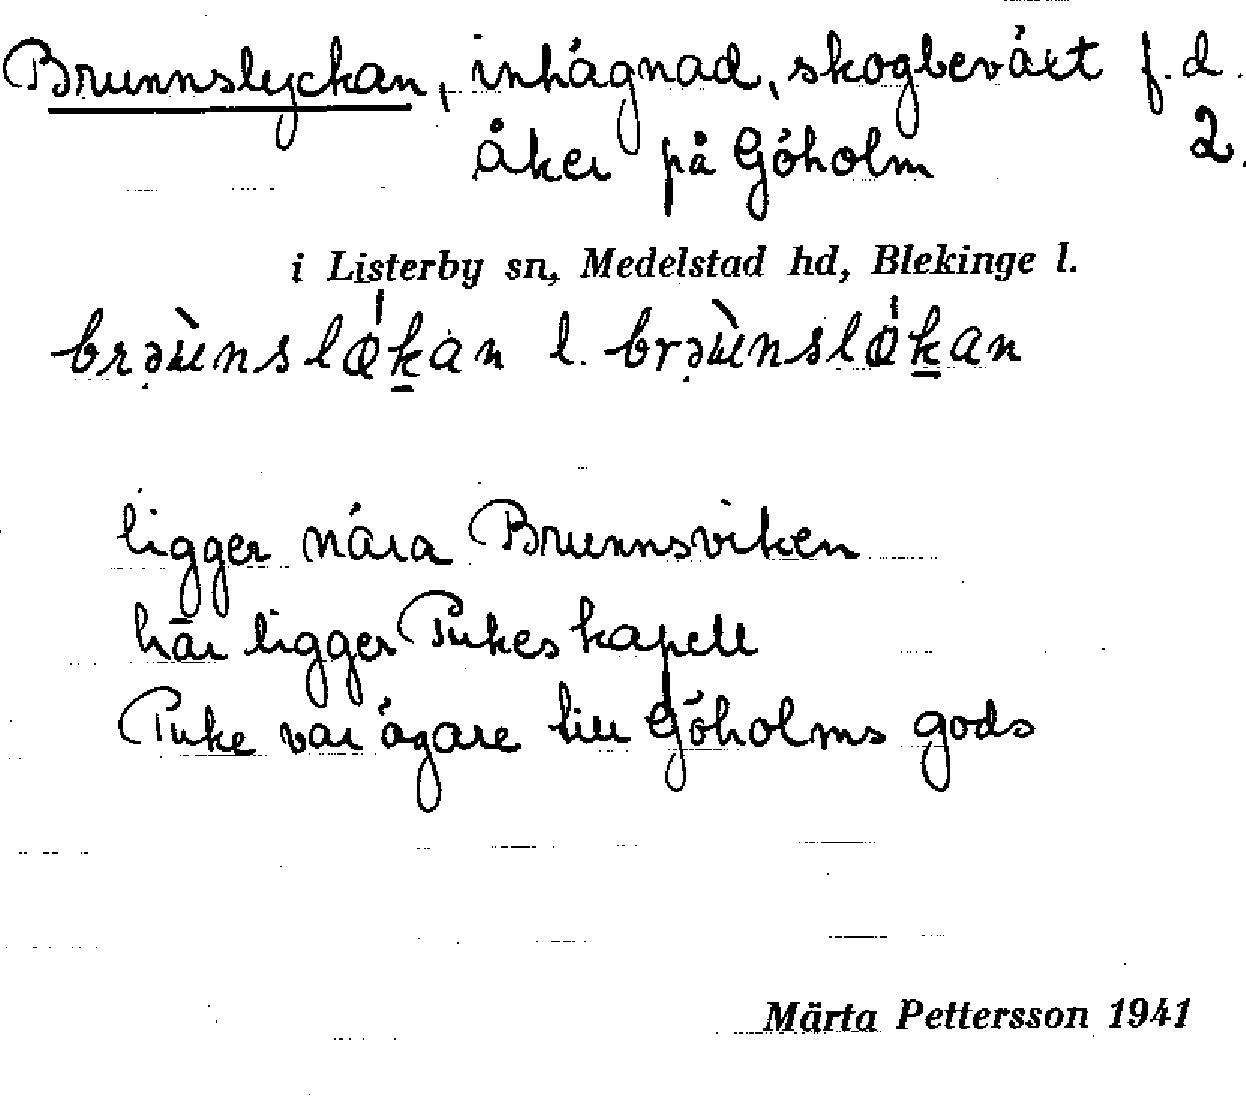 Brunnslyckan, inhägnad, skogbeväxt f.d.
åker på Göholm 2.
i Listerby sn, Medelstad hd, Blekinge l.
brəùnsløkan l. brəùnsløkan
ligger nära Brunnsviken
här ligger Pukes kapell
Puke var ägare till Göholms gods
Märta Pettersson 1941